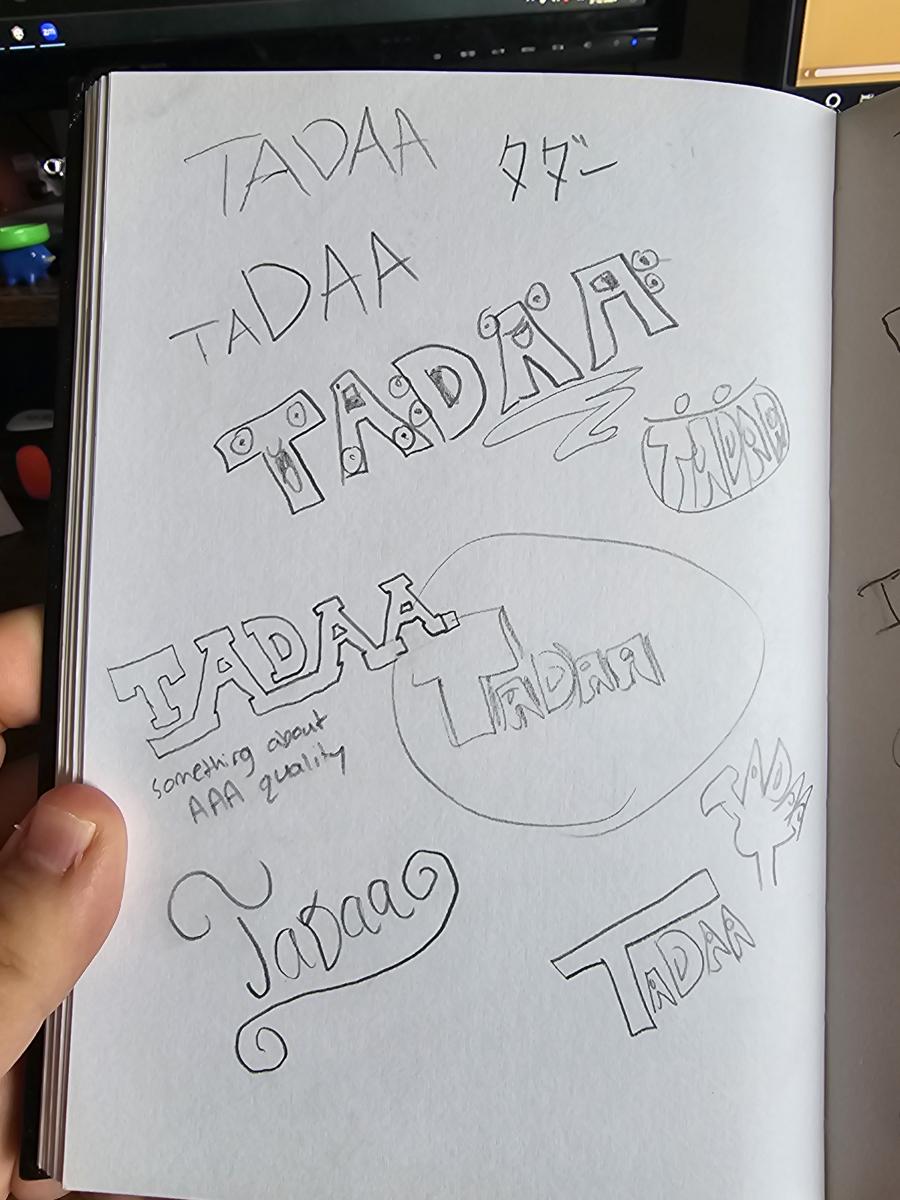 TADAA
タダー
TADAA
TADAA
TADAA
TADAA.
something about
AAA quality
TADAA
TADAA
Tadaa
TADAA